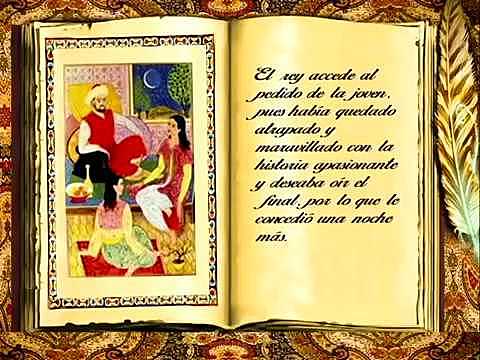 El rey accede al
pedido de la joven,
pues había quedado
atrapado y
maravillado con la
historia apasionante
y deseaba oír el
final, por lo que le
concedió una noche
más.